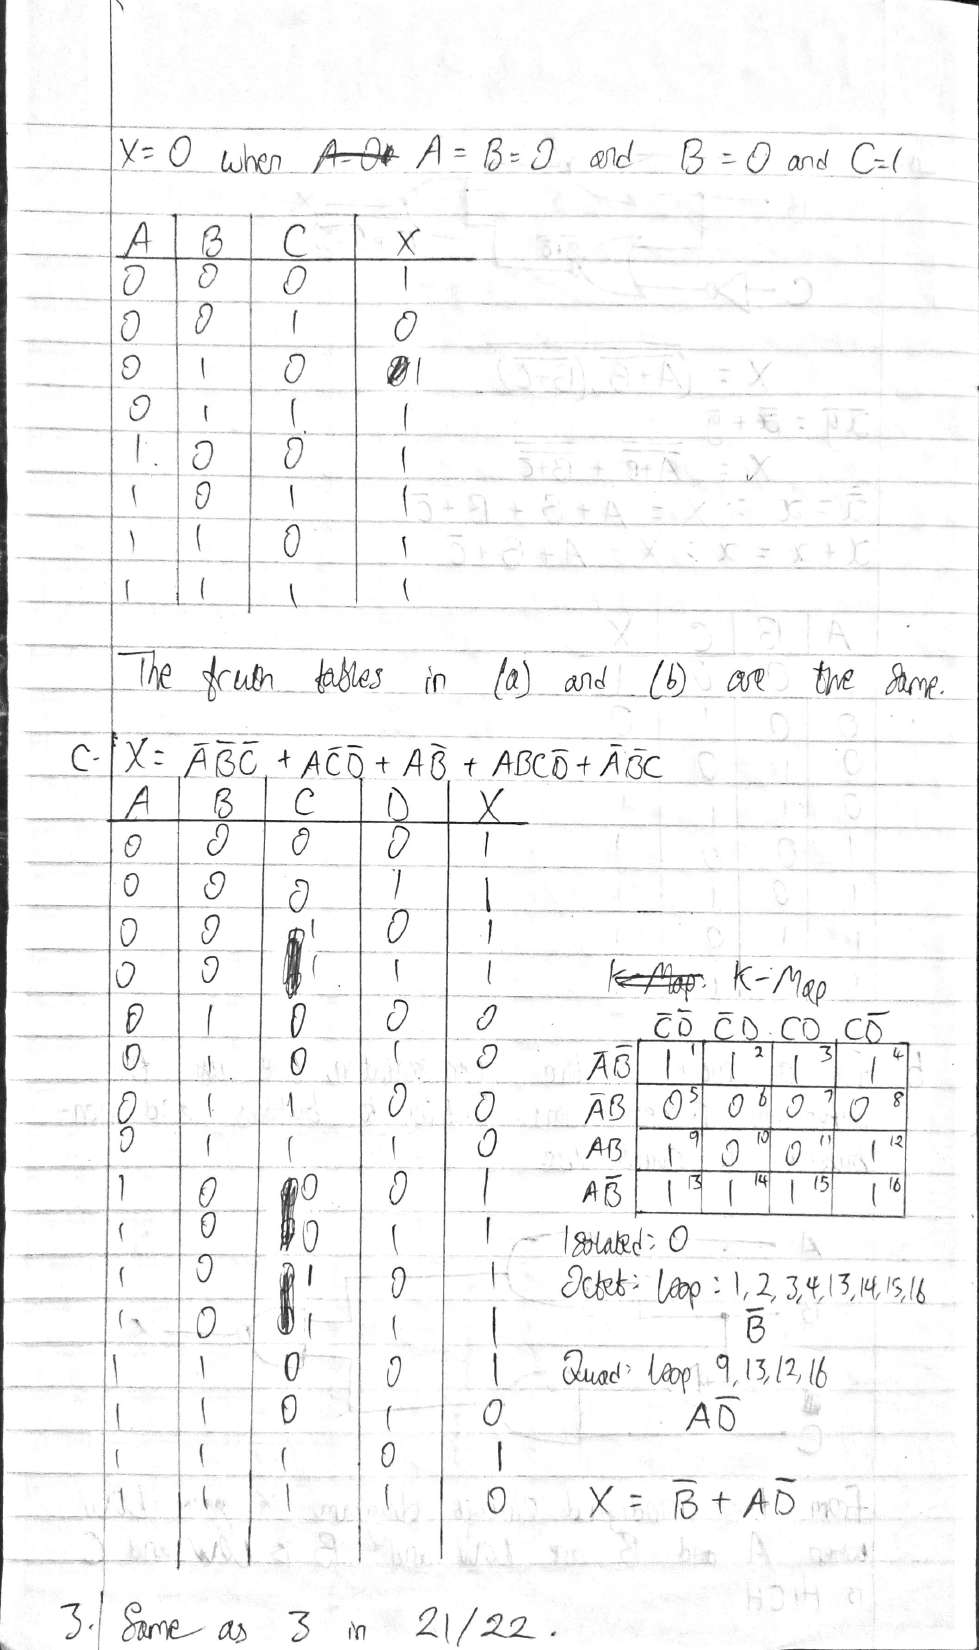 X = 0 when A = B = 0 and B = 0 and C = 1
A B C X
0 0 0 1
0 0 1 0
0 1 0 1
0 1 1 1
1 0 0 1
1 0 1 1
1 1 0 1
1 1 1 1
The truth tables in (a) and (b) are the same.
C. X = A̅B̅C̅ + AC̅D̅ + AB̅ + ABCD̅ + A̅B̅C
A B C D X
0 0 0 0 1
0 0 0 1 1
0 0 1 0 1
0 0 1 1 1
0 1 0 0 0
0 1 0 1 0
0 1 1 0 0
0 1 1 1 0
1 0 0 0 1
1 0 0 1 1
1 0 1 0 1
1 0 1 1 1
1 1 0 0 1
1 1 0 1 0
1 1 1 0 1
1 1 1 1 0
K-Map
C̅D̅ C̅D CD CD̅
A̅B̅ 1 1 1 2 1 3 1 4
A̅B 0 5 0 6 0 7 0 8
AB 1 9 0 10 0 11 1 12
AB̅ 1 13 1 14 1 15 1 16
Isolated: 0
Octet: loop: 1, 2, 3, 4, 13, 14, 15, 16
B̅
Quad: loop 9, 13, 12, 16
AD̅
X = B̅ + AD̅
3. Same as 3 in 21/22.